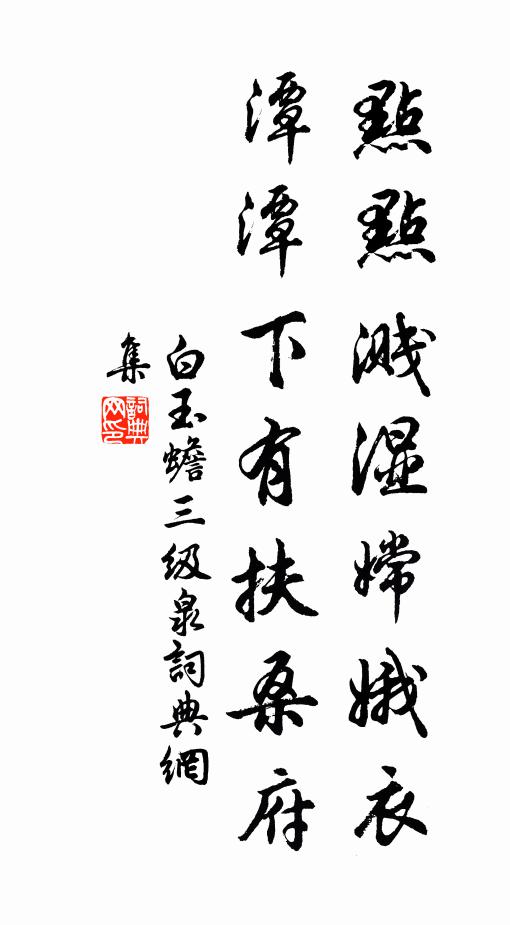 點點濺濕嫦娥衣
潭潭下有扶桑府
白玉蟾三級泉詞典網
集
詞典
网印